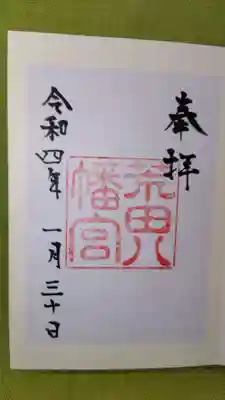 奉拝
荒田八幡宮
令和四年 一月三十日